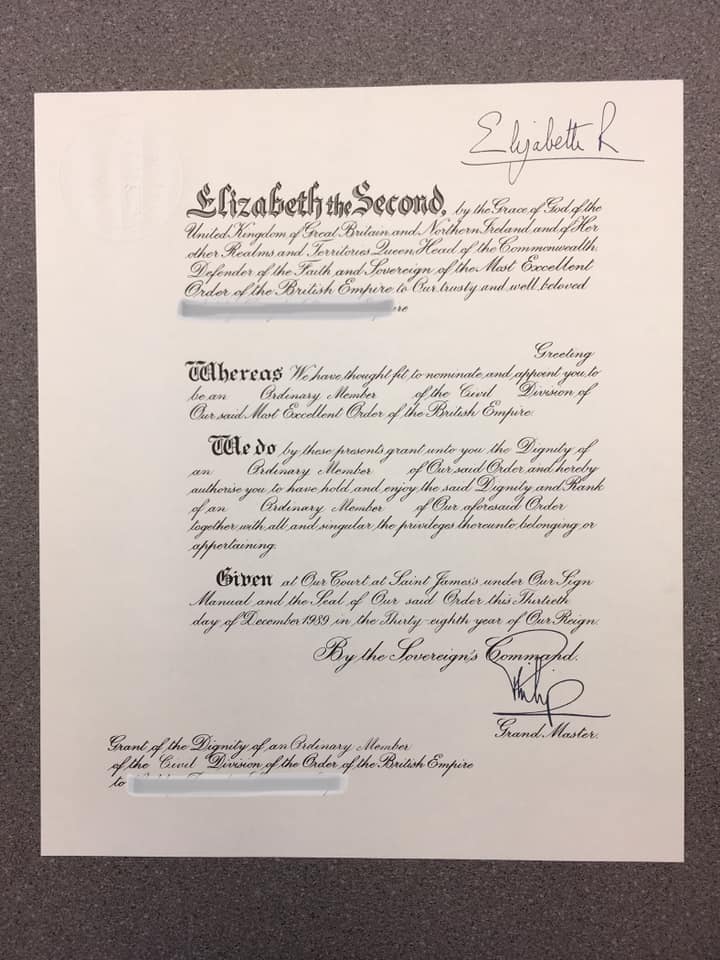 Elizabeth R
Elizabeth the Second, by the Grace of God of the
United Kingdom of Great Britain and Northern Ireland and of Her
other Realms and Territories Queen, Head of the Commonwealth,
Defender of the Faith and Sovereign of the Most Excellent
Order of the British Empire to Our trusty and well beloved
Greeting
Whereas We have thought fit to nominate and appoint you to
be an Ordinary Member of the Civil Division of
Our said Most Excellent Order of the British Empire.
We do by these presents grant unto you the Dignity of
an Ordinary Member of Our said Order and hereby
authorise you to have hold and enjoy the said Dignity and Rank
of an Ordinary Member of Our aforesaid Order
together with all and singular the privileges thereunto belonging or
appertaining.
Given at Our Court at Saint James's under Our Sign
Manual and the Seal of Our said Order this Thirtieth
day of December 1989 in the Thirty-eighth year of Our Reign.
By the Sovereign's Command.
Philip
Grand Master.
Grant of the Dignity of an Ordinary Member
of the Civil Division of the Order of the British Empire
to